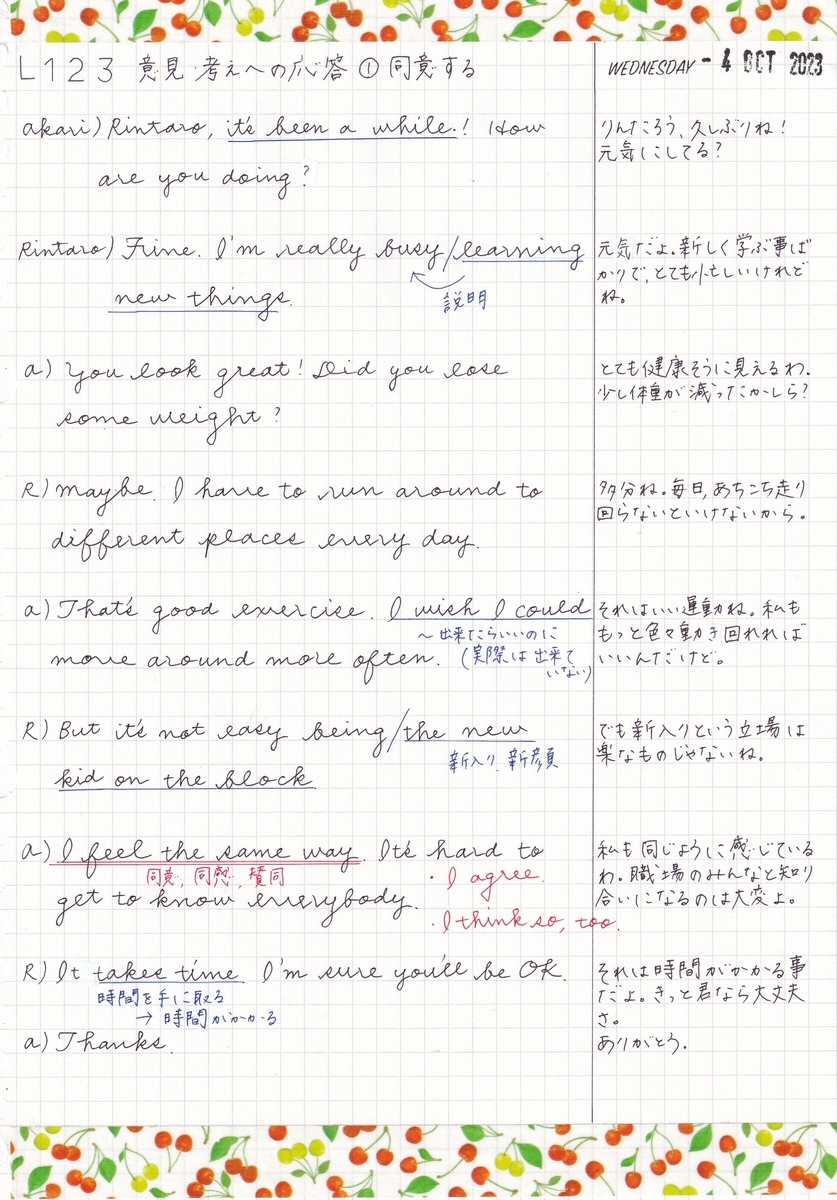 L123 意見・考えへの応答 ① 同意する
WEDNESDAY - 4 OCT 2023
akari) Rintaro, it's been a while! How
are you doing?
りんたろう、久しぶりね！
元気にしてる？
Rintaro) Fine. I'm really busy/learning
new things.
説明
元気だよ。新しく学ぶ事ば
かりで、とても忙しいけれど
ね。
a) You look great! Did you lose
some weight?
とても健康そうに見えるわ。
少し体重が減ったかしら？
R) maybe. I have to run around to
different places every day.
多分ね。毎日、あちこち走り
回らないといけないから。
a) That's good exercise. I wish I could
〜出来たらいいのに
move around more often.
(実際は出来て
いない)
それはいい運動ね。私も
もっと色々動き回れれば
いいんだけど。
R) But it's not easy being/the new
kid on the block
新入り、新顔
でも新入りという立場は
楽なものじゃないね。
a) I feel the same way. It's hard to
同意、同感、賛同
・I agree.
get to know everybody.
・I think so, too.
私も同じように感じている
わ。職場のみんなと知り
合いになるのは大変よ。
R) It takes time. I'm sure you'll be OK.
時間を手に取る
→ 時間がかかる
それは時間がかかる事
だよ。きっと君なら大丈夫
さ。
a) Thanks.
ありがとう。